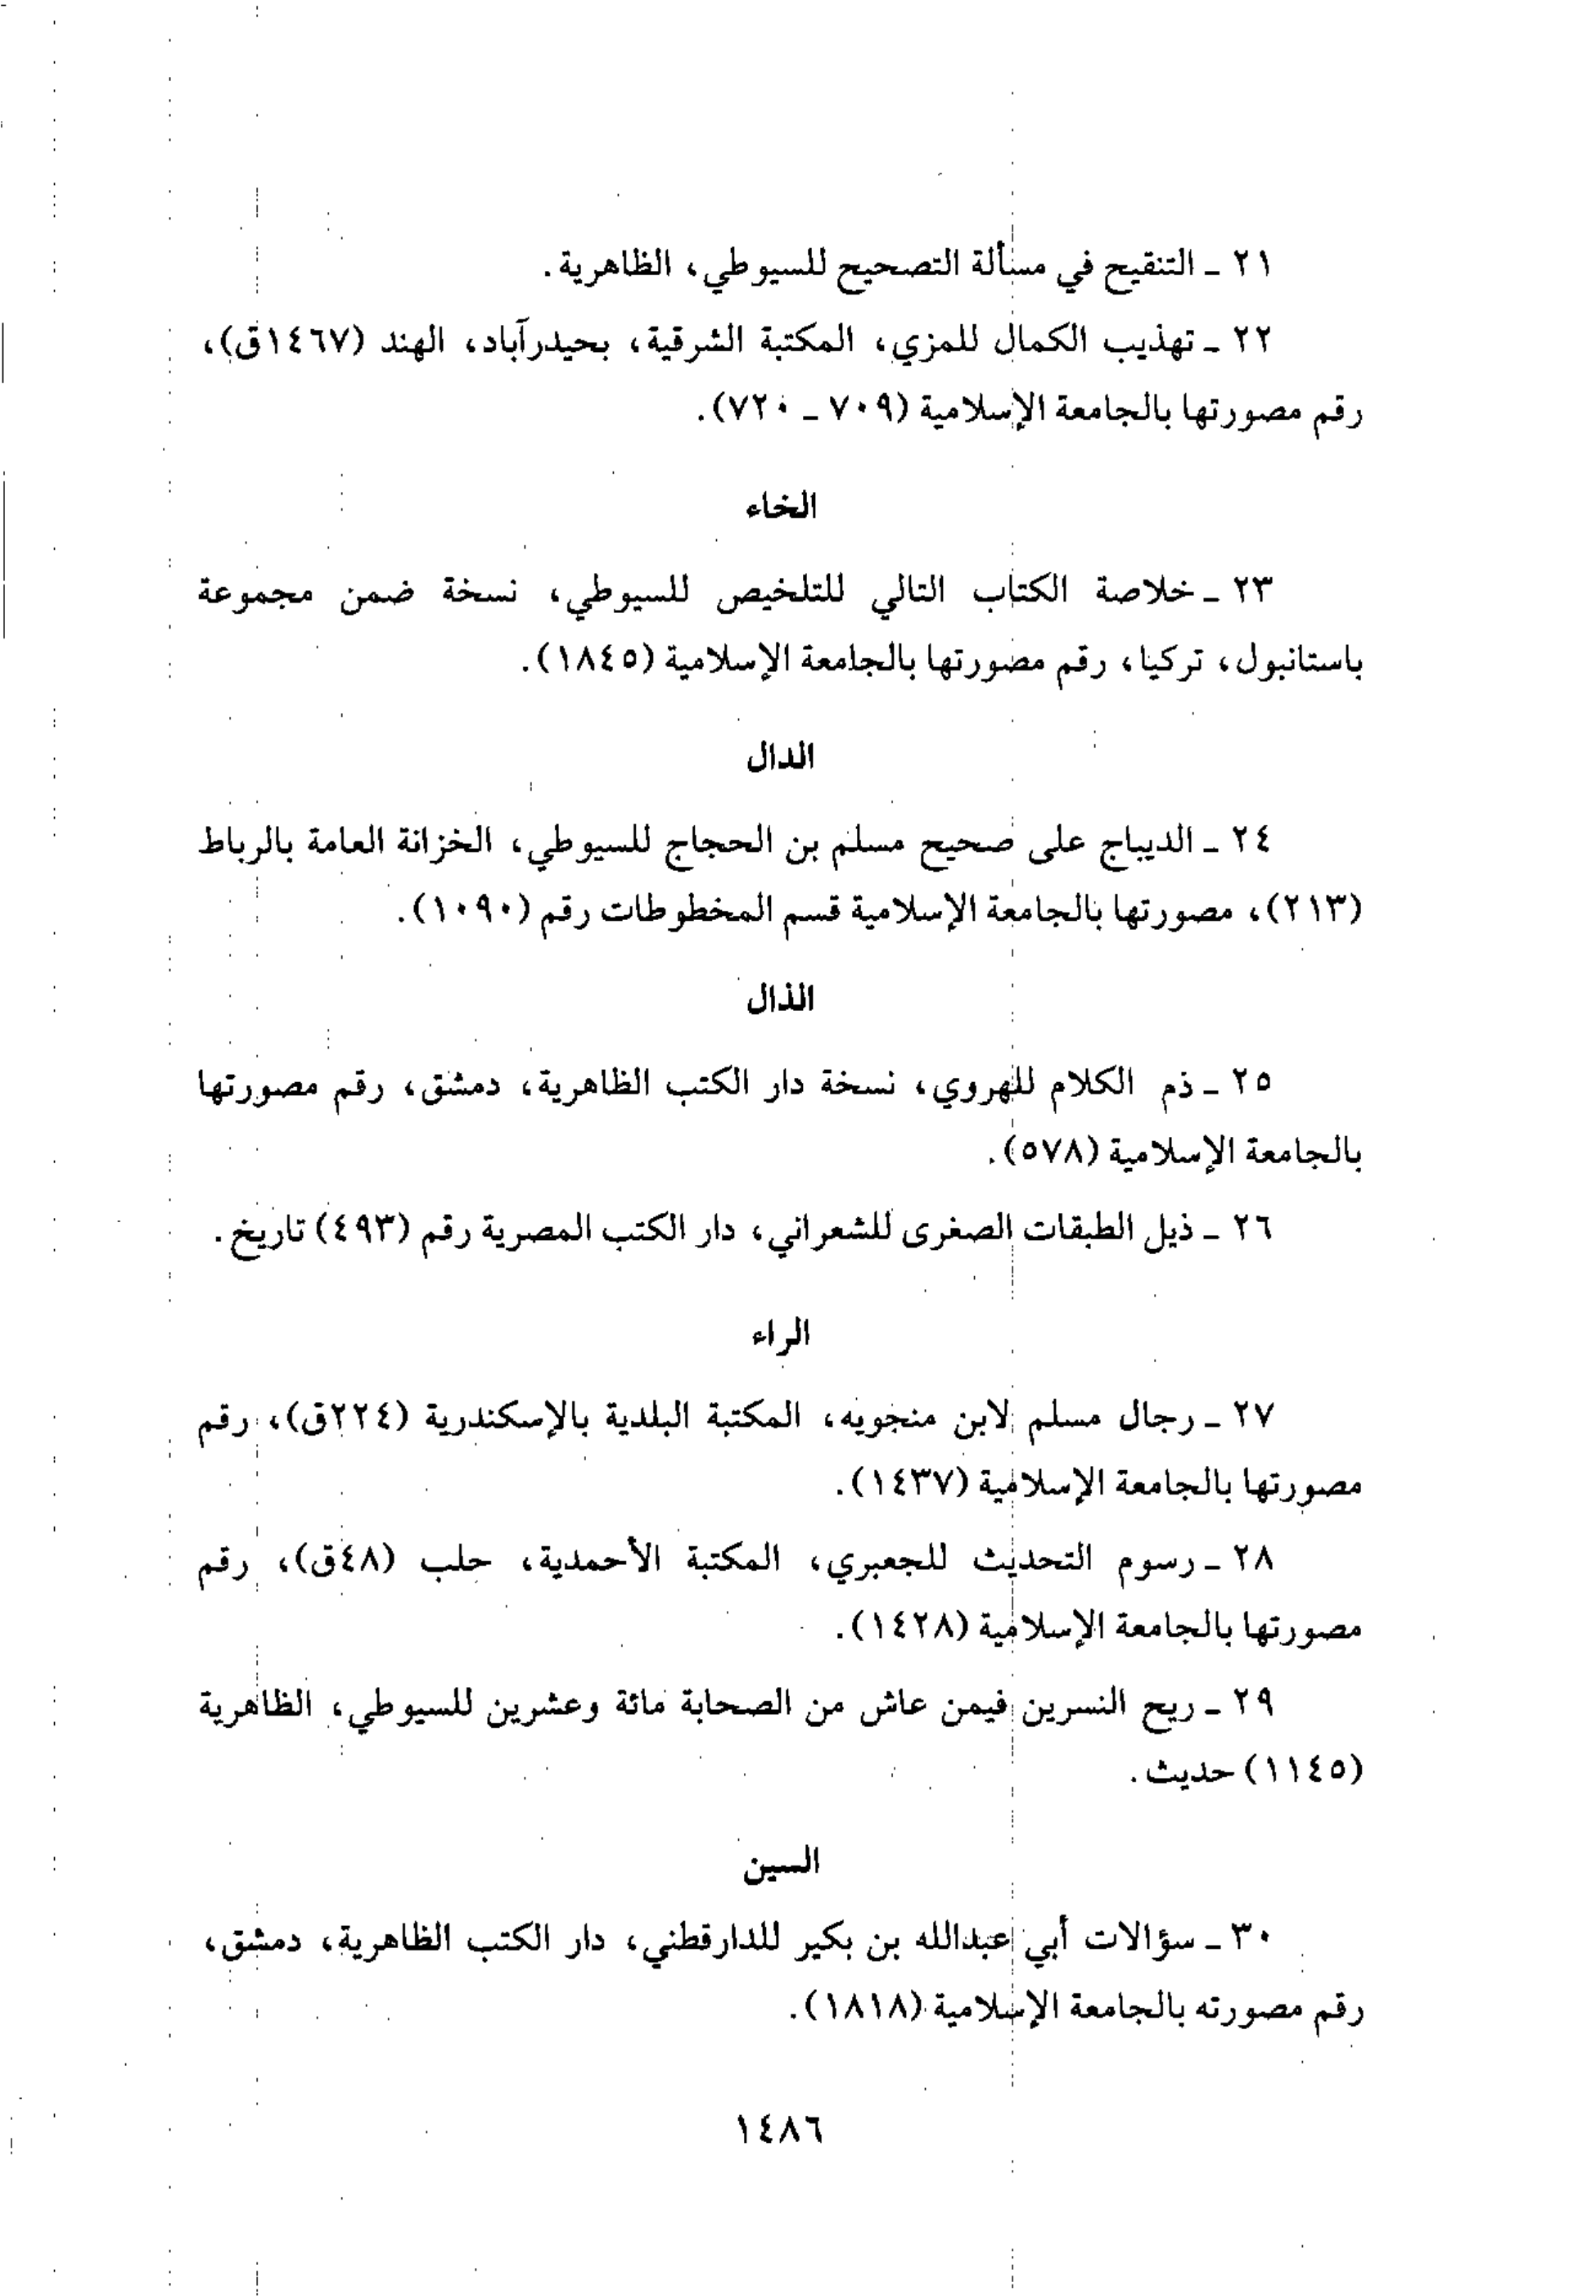 ٢١ ـ التنقيح في مسألة التصحيح للسيوطي، الظاهرية.
٢٢ ـ تهذيب الكمال للمزي، المكتبة الشرقية، بحيدرآباد، الهند (١٤٦٧ق)،
رقم مصورتها بالجامعة الإسلامية (٧٠٩ ـ ٧٢٠).
الخاء
٢٣ ـ خلاصة الكتاب التالي للتلخيص للسيوطي، نسخة ضمن مجموعة
باستانبول، تركيا، رقم مصورتها بالجامعة الإسلامية (١٨٤٥).
الدال
٢٤ ـ الديباج على صحيح مسلم بن الحجاج للسيوطي، الخزانة العامة بالرباط
(٢١٣)، مصورتها بالجامعة الإسلامية قسم المخطوطات رقم (١٠٩٠).
الذال
٢٥ ـ ذم الكلام للهروي، نسخة دار الكتب الظاهرية، دمشق، رقم مصورتها
بالجامعة الإسلامية (٥٧٨).
٢٦ ـ ذيل الطبقات الصغرى للشعراني، دار الكتب المصرية رقم (٤٩٣) تاريخ.
الراء
٢٧ ـ رجال مسلم لابن منجويه، المكتبة البلدية بالإسكندرية (٢٢٤ق)، رقم
مصورتها بالجامعة الإسلامية (١٤٣٧).
٢٨ ـ رسوم التحديث للجعبري، المكتبة الأحمدية، حلب (٤٨ق)، رقم
مصورتها بالجامعة الإسلامية (١٤٢٨).
٢٩ ـ ريح النسرين فيمن عاش من الصحابة مائة وعشرين للسيوطي، الظاهرية
(١١٤٥) حديث.
السين
٣٠ ـ سؤالات أبي عبدالله بن بكير للدارقطني، دار الكتب الظاهرية، دمشق،
رقم مصورته بالجامعة الإسلامية (١٨١٨).
١٤٨٦